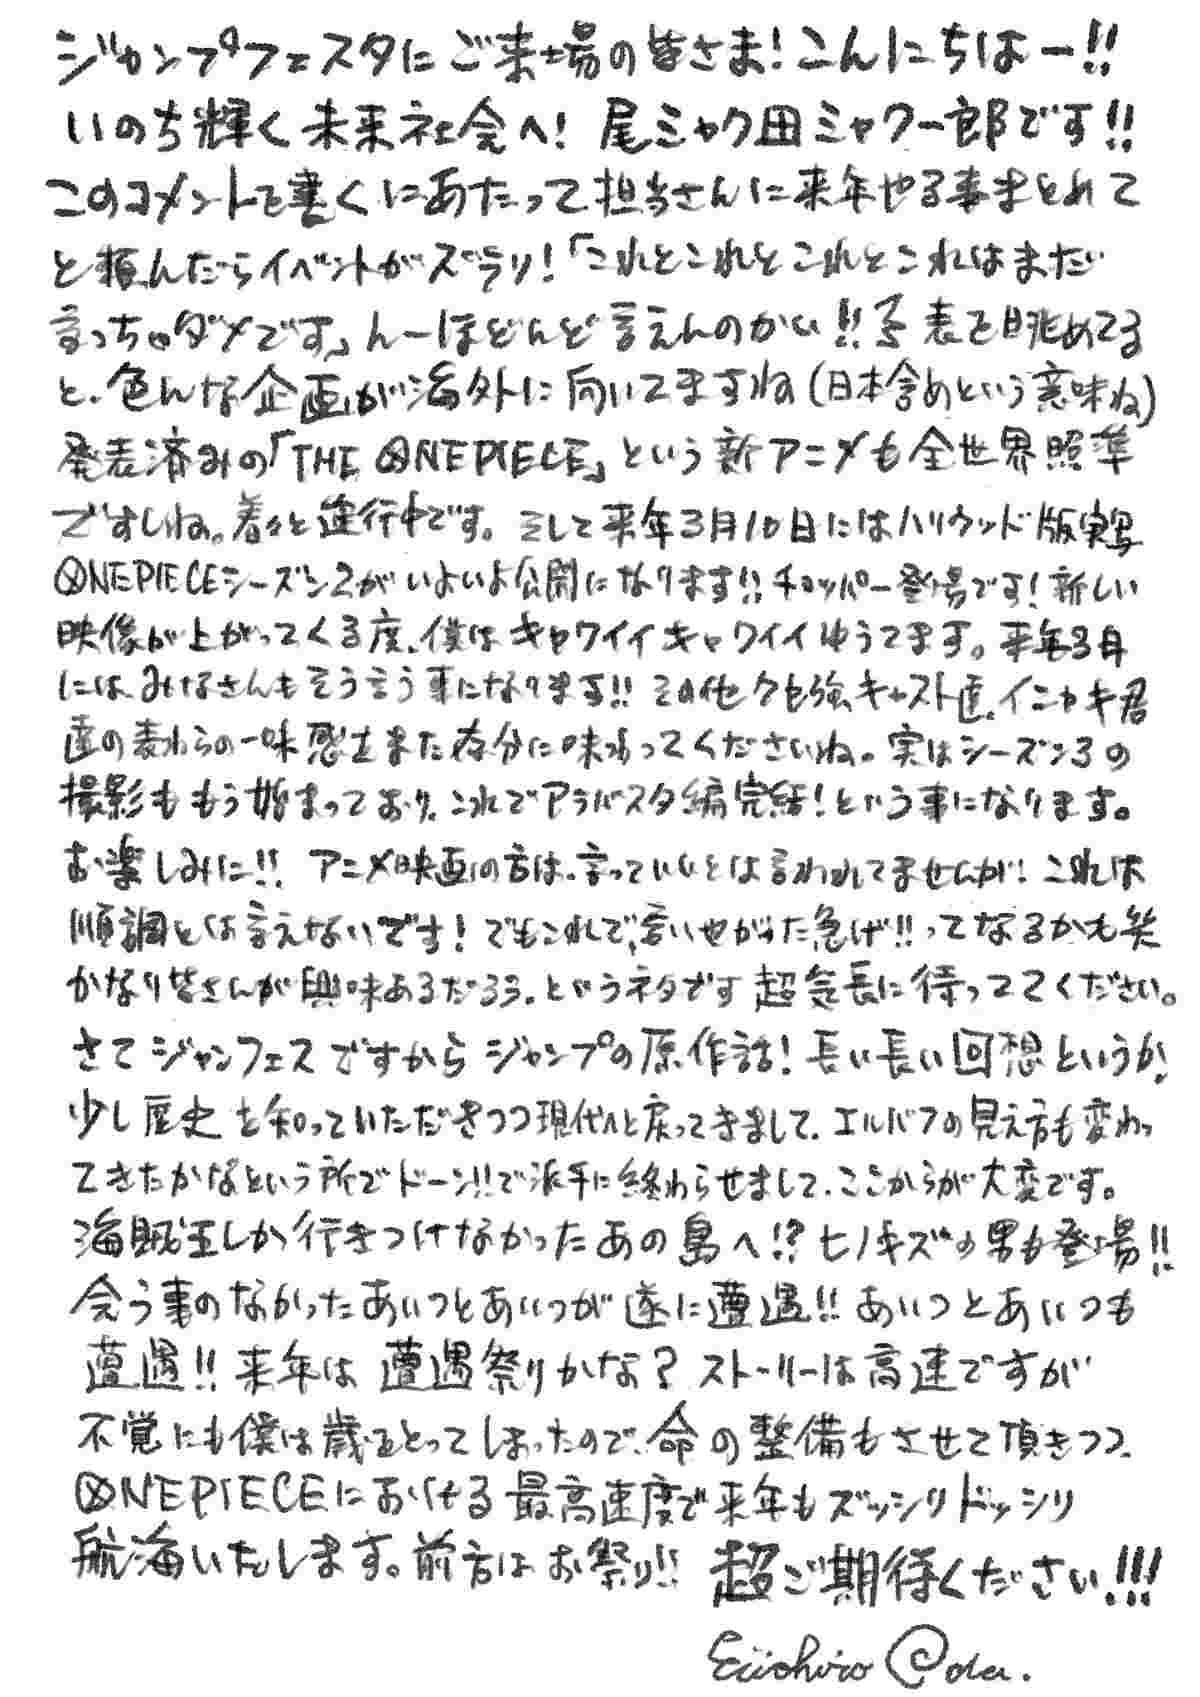 ジャンプフェスタにご来場の皆さま！こんにちはー!!
いのち輝く未来社会へ！尾ミャク田ミャク一郎です!!
このコメントを書くにあたって担当さんに来年やる事まとめて
と頼んだらイベントがズラリ！「これとこれとこれとこれはまだ
言っちゃダメです」んーほどんど言えんのかい!!予表を眺めてる
と、色んな企画が海外に向いてますね(日本含めという意味ね)
発表済みの「THE ONE PIECE」という新アニメも全世界照準
ですしね。着々と進行中です。そして来年3月10日にはハリウッド版実写
ONE PIECEシーズン2がいよいよ公開になります!!チョッパー登場です！新しい
映像が上がってくる度、僕はキャワイイキャワイイゆうてます。来年3月
には、みなさんもそう言う事になります!!その他クセ強キャスト達、イニャキ君
達の麦わらの一味感をまた存分に味わってくださいね。実はシーズン3の
撮影ももう始まっており、これでアラバスタ編完結！という事になります。
お楽しみに!!アニメ映画の方は、言っていいとは言われてませんが！これは
順調とは言えないです！でもこれで、言いやがった急げ!!ってなるかも笑
かなり皆さんが興味あるだろう、というネタです超気長に待っててください。
さてジャンフェスですからジャンプの原作話！長い長い回想というか、
少し歴史を知っていただきつつ現代へと戻ってきまして、エルバフの見え方も変わっ
てきたかなという所でドーン!!で派手に終わらせまして、ここからが大変です。
海賊王しか行きつけなかったあの島へ!?ヒノキズの男も登場!!
会う事のなかったあいつとあいつが遂に遭遇!!あいつとあいつも
遭遇!!来年は遭遇祭りかな？ストーリーは高速ですが
不覚にも僕は歳をとってしまったので、命の整備もさせて頂きつつ、
ONE PIECEにおける最高速度で来年もズッシリドッシリ
航海いたします。前方はお祭り!!超ご期待ください!!!
Eiichiro Oda.